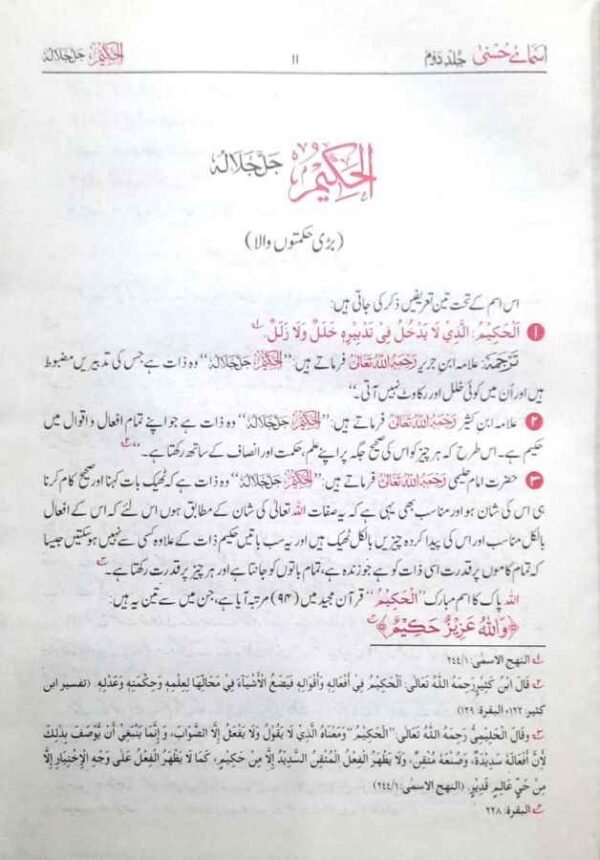 اسمائے حسنیٰ جلد دوم ۱۱ الحکیم جل جلالہ
الحکیم جَلَّ جَلَالُہٗ
(بڑی حکمتوں والا)
اس اسم کے تحت تین تعریفیں ذکر کی جاتی ہیں:
۱ اَلْحَکِیْمُ: الَّذِیْ لَا یَدْخُلُ فِیْ تَدْبِیْرِہٖ خَلَلٌ وَلَا زَلَلٌ.
تَرْجَمَہ: علامہ ابن جریر رَحِمَہُ اللہُ تَعَالٰی فرماتے ہیں: ”الحکیم جل جلالہ“ وہ ذات ہے جس کی تدبیریں مضبوط
ہیں اور اُن میں کوئی خلل اور رکاوٹ نہیں آتی۔“
۲ علامہ ابن کثیر رَحِمَہُ اللہُ تَعَالٰی فرماتے ہیں: ”الحکیم جل جلالہ“ وہ ذات ہے جو اپنے تمام افعال و اقوال میں
حکیم ہے۔ اس طرح کہ ہر چیز کو اس کی صحیح جگہ پر اپنے علم، حکمت اور انصاف کے ساتھ رکھتا ہے۔“
۳ حضرت امام حلیمی رَحِمَہُ اللہُ تَعَالٰی فرماتے ہیں: ”الحکیم جل جلالہ“ وہ ذات ہے کہ ٹھیک بات کہنا اور صحیح کام کرنا
ہی اس کی شان ہو اور مناسب بھی یہی ہے کہ یہ صفات اللہ تعالٰی کی شان کے مطابق ہوں اس لئے کہ اس کے افعال
بالکل مناسب اور اس کی پیدا کردہ چیزیں بالکل ٹھیک ہیں اور یہ سب باتیں حکیم ذات کے علاوہ کسی سے نہیں ہوسکتیں جیسا
کہ تمام کاموں پر قدرت اسی ذات کو ہے جو زندہ ہے، تمام باتوں کو جانتا ہے اور ہر چیز پر قدرت رکھتا ہے۔
اللہ پاک کا اسم مبارک ”اَلْحَکِیْمُ“ قرآن مجید میں (۹۴) مرتبہ آیا ہے، جن میں سے تین یہ ہیں:
﴿وَاللّٰہُ عَزِیْزٌ حَکِیْمٌ﴾
۱ النھج الاسمٰی: ۲۴۴/۱
۲ قَالَ ابْنُ کَثِیْرٍ رَحِمَہُ اللّٰہُ تَعَالٰی: اَلْحَکِیْمُ فِیْ اَفْعَالِہٖ وَاَقْوَالِہٖ فَیَضَعُ الْاَشْیَآءَ فِیْ مَحَالِّھَا لِعِلْمِہٖ وَحِکْمَتِہٖ وَعَدْلِہٖ. (تفسیر ابن
کثیر: ۱۲۲، البقرۃ: ۱۲۹)
۳ وَقَالَ الْحَلِیْمِیُّ رَحِمَہُ اللّٰہُ تَعَالٰی: ”اَلْحَکِیْمُ“ وَمَعْنَاہُ الَّذِیْ لَا یَقُوْلُ وَلَا یَفْعَلُ اِلَّا الصَّوَابَ، وَاِنَّمَا یَنْبَغِیْ اَنْ یُّوْصَفَ بِذٰلِکَ
لِاَنَّ اَفْعَالَہٗ سَدِیْدَۃٌ، وَصُنْعَہٗ مُتْقَنٌ، وَلَا یَظْھَرُ الْفِعْلُ الْمُتْقَنُ السَّدِیْدُ اِلَّا مِنْ حَکِیْمٍ، کَمَا لَا یَظْھَرُ الْفِعْلُ عَلٰی وَجْہِ الْاِخْتِیَارِ اِلَّا
مِنْ حَیٍّ عَالِمٍ قَدِیْرٍ. (النھج الاسمٰی: ۲۴۴/۱)
۴ البقرۃ: ۲۲۸